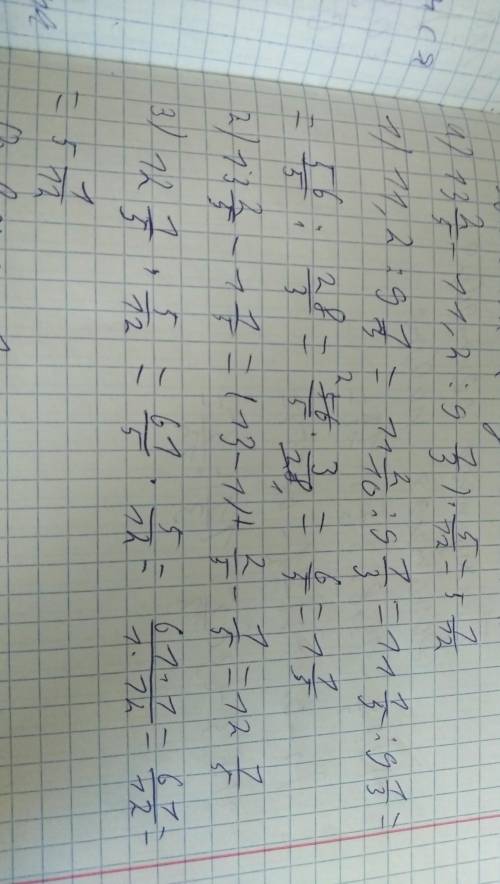 а) 13 2/5 - 11,2 : 9 1/3) · 5/12 = 5 1/12
1) 11,2 : 9 1/3 = 11 2/10 : 9 1/3 = 11 1/5 : 9 1/3 =
= 56/5 : 28/3 = 56/5 · 3/28 = 6/5 = 1 1/5
2) 13 2/5 - 1 1/5 = (13-1)+ 2/5 - 1/5 = 12 1/5
3) 12 1/5 · 5/12 = 61/5 · 5/12 = 61·1/1·12 = 61/12 =
= 5 1/12